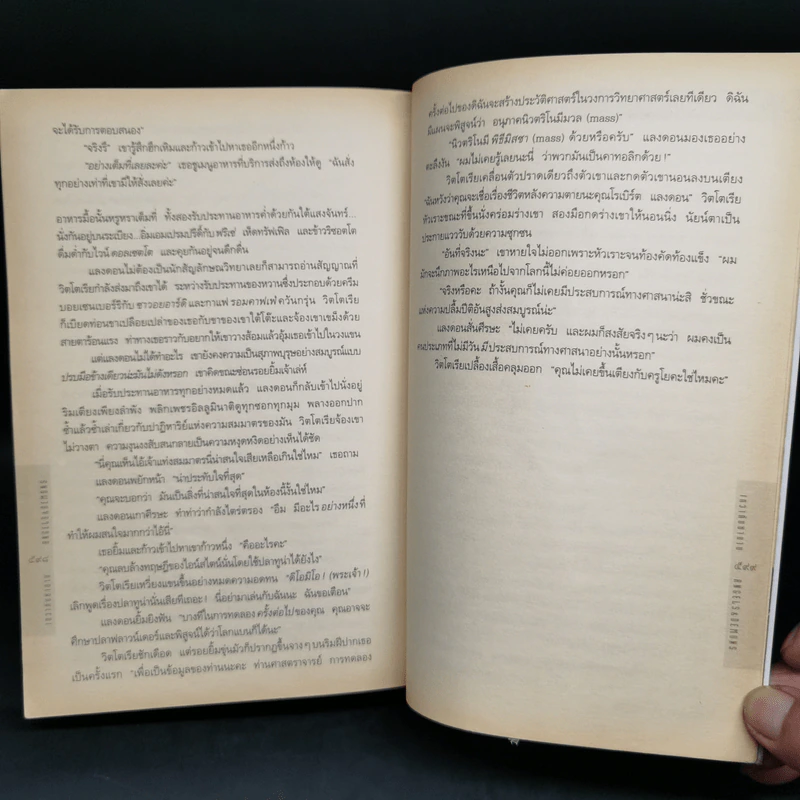 จะได้รับการตอบสนอง"
"จริงรึ" เขารู้สึกฮึกเหิมและก้าวเข้าไปหาเธออีกหนึ่งก้าว
"อย่างเต็มที่เลยละค่ะ" เธอชูเมนูอาหารที่บริการส่งถึงห้องให้ดู "ฉันสั่ง
ทุกอย่างเท่าที่เขามีให้สั่งเลยค่ะ"
อาหารมื้อนั้นหรูหราเต็มที่ ทั้งสองรับประทานอาหารค่ำด้วยกันใต้แสงจันทร์...
นั่งกันอยู่บนระเบียง...อิ่มเอมเปรมปรีดิ์กับ ฟรีเซ่ เห็ดทรัฟเฟิล และข้าวริซอตโต
ดื่มด่ำกับไวน์ ดอลเชตโต และคุยกันอยู่จนดึกดื่น
แลงดอนไม่ต้องเป็นนักสัญลักษณวิทยาเลยก็สามารถอ่านสัญญาณที่
วิตโตเรียกำลังส่งมาถึงเขาได้ ระหว่างรับประทานของหวานซึ่งประกอบด้วยครีม
บอยเซนเบอร์รีกับ ซาวอยอาร์ดี และกาแฟ รอมคาฟเฟ ควันกรุ่น วิตโตเรีย
ก็เบียดท่อนขาเปลือยเปล่าของเธอกับขาของเขาใต้โต๊ะและจ้องเขาเขม็งด้วย
สายตาร้อนแรง ทำทางเธอราวกับอยากให้เขาวางส้อมแล้วอุ้มเธอเข้าไปในวงแขน
แต่แลงดอนไม่ได้ทำอะไร เขายังคงความเป็นสุภาพบุรุษอย่างสมบูรณ์แบบ
ปรบมือข้างเดียวน่ะมันไม่ดังหรอก เขาคิดขณะซ่อนรอยยิ้มเจ้าเล่ห์
เมื่อรับประทานอาหารทุกอย่างหมดแล้ว แลงดอนก็กลับเข้าไปนั่งอยู่
ริมเตียงเพียงลำพัง พลิกเพชรอิลลูมินาติดูทุกซอกทุกมุม พลางออกปาก
ซ้ำแล้วซ้ำเล่าเกี่ยวกับปาฏิหาริย์แห่งความสมมาตรของมัน วิตโตเรียจ้องเขา
ไม่วางตา ความงุนงงสับสนกลายเป็นความหงุดหงิดอย่างเห็นได้ชัด
"นี่คุณเห็นไอ้เจ้าแท่งสมมาตรนี่น่าสนใจเสียเหลือเกินใช่ไหม" เธอถาม
แลงดอนพยักหน้า "น่าประทับใจที่สุด"
"คุณจะบอกว่า มันเป็นสิ่งที่น่าสนใจที่สุดในห้องนี้งั้นใช่ไหม"
แลงดอนเกาศีรษะ ทำท่าว่ากำลังไตร่ตรอง "อืม มีอะไร อย่างหนึ่ง ที่
ทำให้ผมสนใจมากกว่าไอ้นี่"
เธอยิ้มและก้าวเข้าไปหาเขาก้าวหนึ่ง "คืออะไรคะ"
"คุณลบล้างทฤษฎีของไอน์สไตน์นั่นโดยใช้ปลาทูน่าได้ยังไง"
วิตโตเรียเหวี่ยงแขนขึ้นอย่างหมดความอดทน "ดีโอมีโอ! (พระเจ้า!)
เลิกพูดเรื่องปลาทูน่านั่นเสียทีเถอะ! นี่อย่ามาเล่นกับฉันนะ ฉันขอเตือน"
แลงดอนยิ้มยิงฟัน "บางทีในการทดลอง ครั้งต่อไปของคุณ คุณอาจจะ
ศึกษาปลาฟลาวน์เดอร์และพิสูจน์ได้ว่าโลกแบนก็ได้นะ"
วิตโตเรียชักเดือด แต่รอยยิ้มขุ่นมัวก็ปรากฏขึ้นจาง ๆ บนริมฝีปากเธอ
เป็นครั้งแรก "เพื่อเป็นข้อมูลของท่านนะคะ ท่านศาสตราจารย์ การทดลอง
๕๙๘
ครั้งต่อไปของดิฉันจะสร้างประวัติศาสตร์ในวงการวิทยาศาสตร์เลยทีเดียว ดิฉัน
มีแผนจะพิสูจน์ว่า อนุภาคนิวตริโนมีมวล (mass)"
"นิวตริโนมี พิธีมิสซา (mass) ด้วยหรือครับ" แลงดอนมองเธออย่าง
ตะลึงงัน "ผมไม่เคยรู้เลยนะนี่ ว่าพวกมันเป็นคาทอลิกด้วย!"
วิตโตเรียเคลื่อนตัวปราดเดียวถึงตัวเขาและกดตัวเขานอนลงบนเตียง
"ฉันหวังว่าคุณจะเชื่อเรื่องชีวิตหลังความตายนะคุณโรเบิร์ต แลงดอน" วิตโตเรีย
หัวเราะขณะที่ขึ้นนั่งคร่อมร่างเขา สองมือกดร่างเขาให้นอนนิ่ง นัยน์ตาเป็น
ประกายแวววับด้วยความซุกซน
"อันที่จริงนะ" เขาหายใจไม่ออกเพราะหัวเราะจนท้องคัดท้องแข็ง "ผม
มักจะนึกภาพอะไรเหนือไปจากโลกนี้ไม่ค่อยออกหรอก"
"จริงหรือคะ ถ้างั้นคุณก็ไม่เคยมีประสบการณ์ทางศาสนาน่ะสิ ชั่วขณะ
แห่งความปลื้มปีติอันสูงส่งสมบูรณ์น่ะ"
แลงดอนสั่นศีรษะ "ไม่เคยครับ และผมก็สงสัยจริง ๆ นะว่า ผมคงเป็น
คนประเภทที่ไม่มีวัน มี ประสบการณ์ทางศาสนาอย่างนั้นหรอก"
วิตโตเรียเปลื้องเสื้อคลุมออก "คุณไม่เคยขึ้นเตียงกับครูโยคะใช่ไหมคะ"
เทวากับซาตาน
๕๙๙
ANGELS&DEMONS